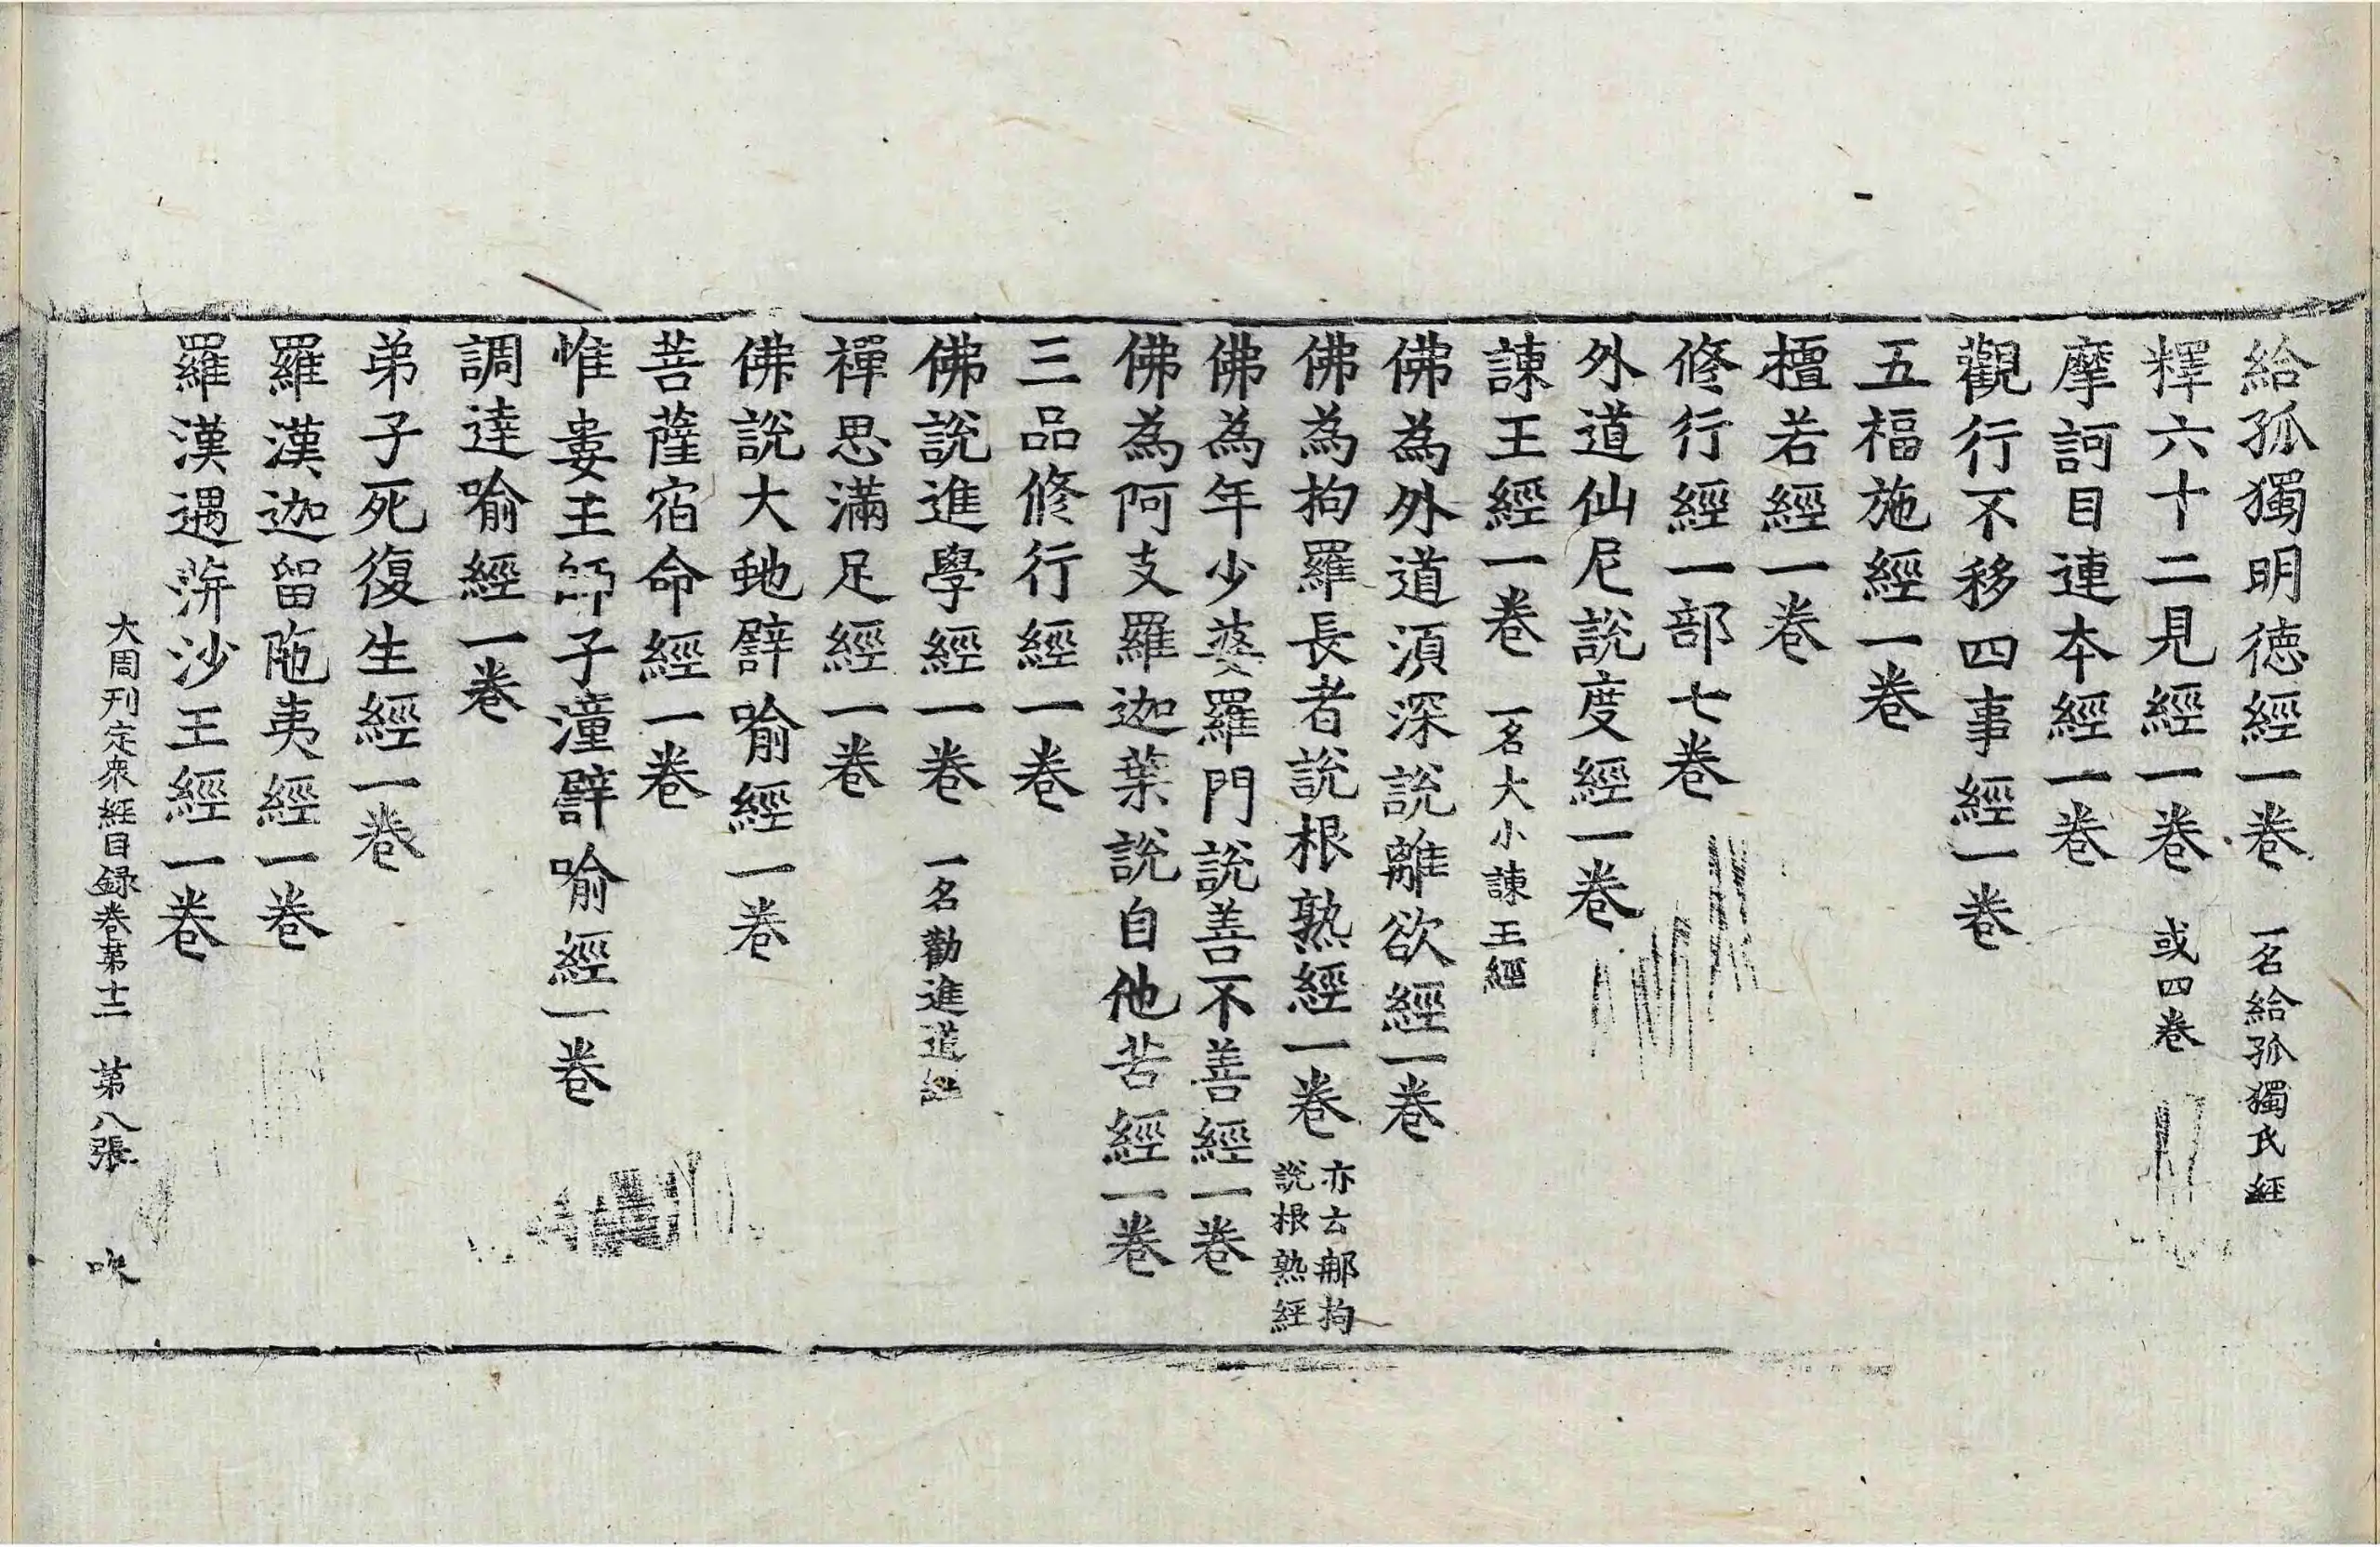 給孤獨明德經一卷 一名給孤獨氏經
釋六十二見經一卷 或四卷
摩訶目連本經一卷
觀行不移四事經一卷
五福施經一卷
檀若經一卷
修行經一部七卷
外道仙尼說度經一卷
諫王經一卷 一名大小諫王經
佛為外道湏深說離欲經一卷
佛為拘羅長者說根熟經一卷 亦云郍拘說根熟經
佛為年少婆羅門說善不善經一卷
佛為阿支羅迦葉說自他苦經一卷
三品修行經一卷
佛說進學經一卷 一名勸進道經
禪思滿足經一卷
佛說大虵譬喻經一卷
菩薩宿命經一卷
惟婁王師子湩譬喻經一卷
調達喻經一卷
弟子死復生經一卷
羅漢迦留陁夷經一卷
羅漢遇蓱沙王經一卷
大周刊定衆經目録卷第十二 第八張 吹